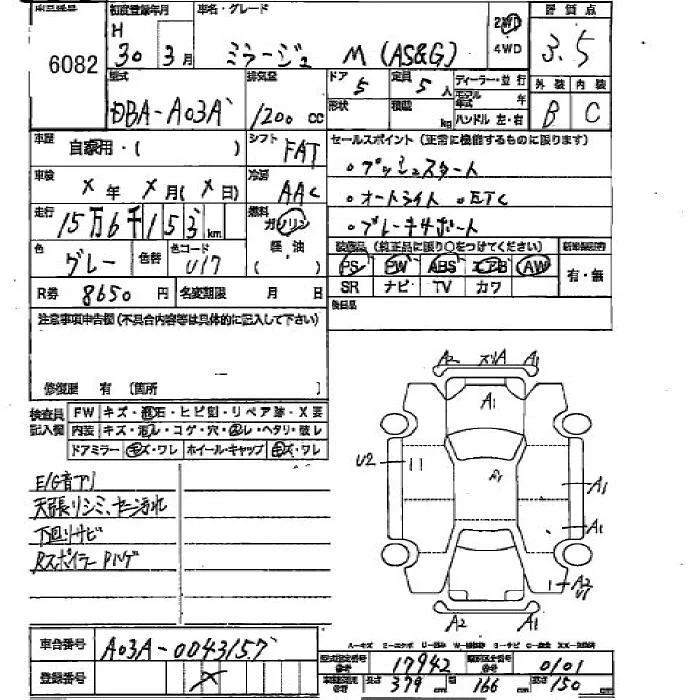 6082
初度登録年月
H 30年 3月
車名・グレード
ミラージュ M (AS&G)
2WD
4WD
評価点
3.5
外装 内装
B C
型式
DBA-A03A
排気量
1200 cc
ドア 5
定員 5人
ディーラー・並行
モデル年式 年
形状
積載 kg
ハンドル 左・右
車歴
自家用・( )
シフト
FAT
セールスポイント (正常に機能するものに限ります)
車検
X年 X月(X日)
冷房
AAC
。プッシュスタート
。オートライト 。ETC
。ブレーキサポート
走行
15万6千153km
燃料
ガソリン
軽油
( )
色
グレー
色替
色コード
U17
装備品 (純正品に限り○をつけてください)
PS PW ABS エアB AW
SR ナビ TV カワ
有・無
R券 8650円
名変期限 月 日
後日品
注意事項申告欄(不具合内容等は具体的に記入して下さい)
修復歴 有 (箇所
検査員記入欄
FW キズ・飛石・ヒビ割・リペア跡・X要
内装 キズ・汚レ・コゲ・穴・スレ・ヘタリ・破レ
ドアミラー キズ・ワレ ホイール・キャップ キズ・ワレ
E/G音アリ
天張リシミ、セーヨ汚れ
下回リサビ
RスポイラーPハゲ
A2 A1
A1
U2
A1
A1
A1
A2
U1
A2 A1
車台番号
A03A-0043157
登録番号
X
型式指定番号
17942
類別区分番号
0101
長さ 379 幅 166 cm 高さ 150 cm